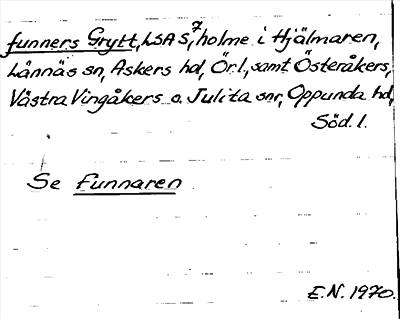 funners Grytt, LSA S, 7 holme i Hjälmaren,
Lännäs sn, Askers hd, Örl., samt Österåkers,
Västra Vingåkers o. Julita snr, Oppunda hd,
Söd. l.
Se Funnaren
E.N. 1970.